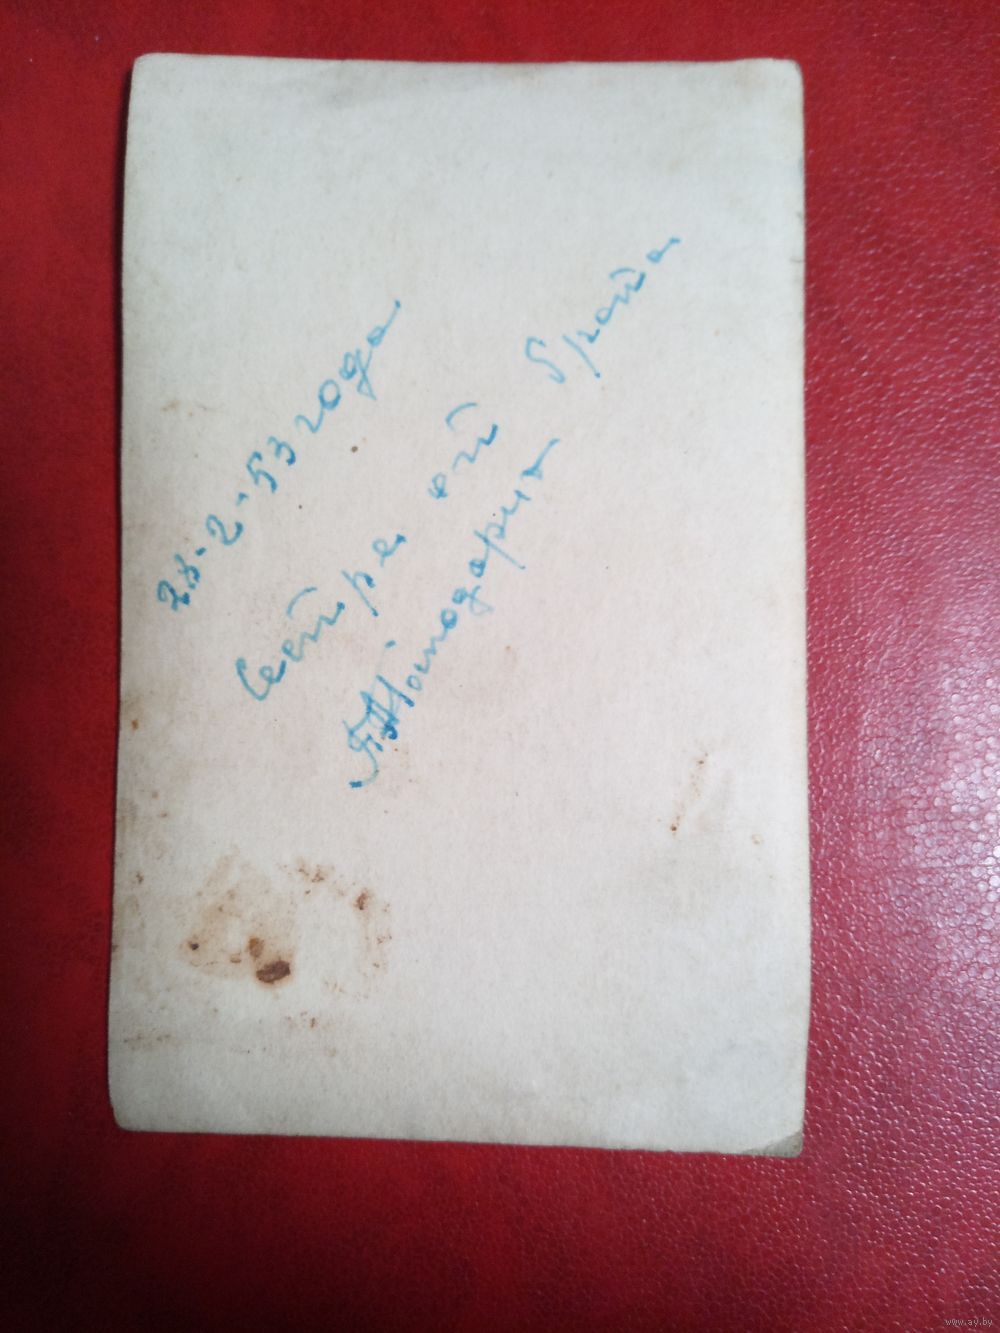 28-2-53 года
Сестре от брата
www.ay.by